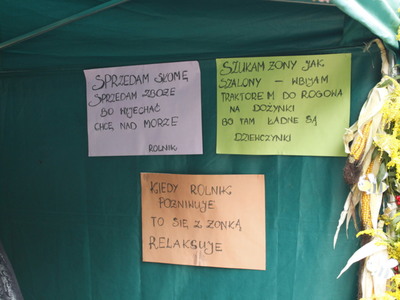 SPRZEDAM SŁOMĘ
SPRZEDAM ZBOŻE
BO WYJECHAĆ
CHCĘ NAD MORZE
ROLNIK
SZUKAM ŻONY JAK
SZALONY – WBIJAM
TRAKTOREM DO ROGOWA
NA DOŻYNKI
BO TAM ŁADNE SĄ
DZIEWCZYNKI
KIEDY ROLNIK
POŻNIWUJE
TO SIĘ Z ŻONKĄ
RELAKSUJE